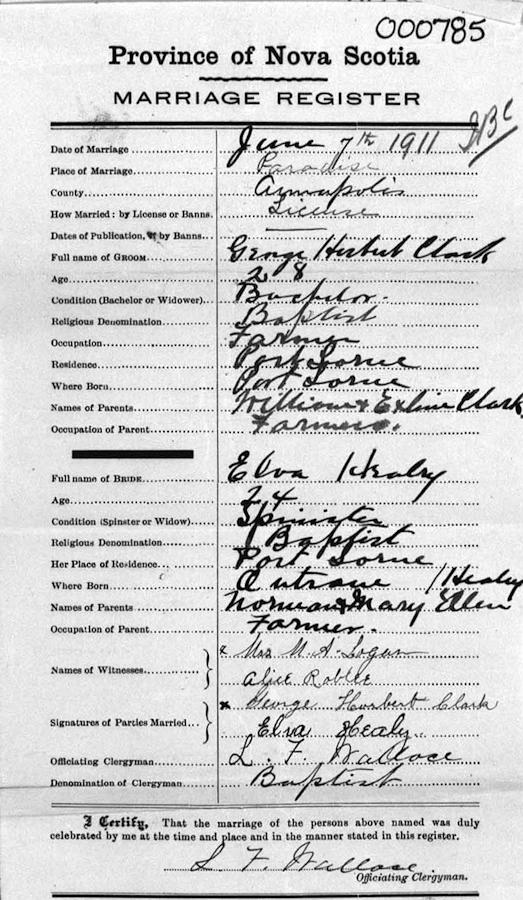 000785
Province of Nova Scotia
MARRIAGE REGISTER
JBC
Date of Marriage June 7th 1911
Place of Marriage Paradise
County Annapolis
How Married: by License or Banns License
Dates of Publication, if by Banns
Full name of GROOM George Herbert Clark
Age 28
Condition (Bachelor or Widower) Bachelor.
Religious Denomination Baptist
Occupation Farmer
Residence Port Lorne
Where Born Port Lorne
Names of Parents William & Exline Clark
Occupation of Parent Farmers.
Full name of BRIDE Elva Healy
Age 24
Condition (Spinster or Widow) Spinister
Religious Denomination Baptist
Her Place of Residence Port Lorne
Where Born Outram
Names of Parents Norman & Mary Ellen / Healy
Occupation of Parent Farmer.
Names of Witnesses x Mrs Logan
Alice Roblee
Signatures of Parties Married x George Herbert Clark
Elva Healy.
Officiating Clergyman L. F. Wallace
Denomination of Clergyman Baptist
I Certify, That the marriage of the persons above named was duly
celebrated by me at the time and place and in the manner stated in this register.
L. F. Wallace.
Officiating Clergyman.